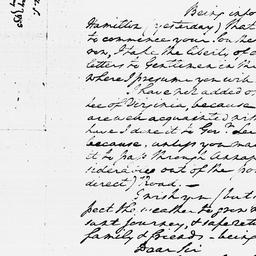 Being info
Hamilton (yesterday) that
to commence your Southe
on, I take the liberty of
letters to Gentlemen in the
where I presume you will
I have not added o
ber of Virginia, because
are well acquainted with
have I done it to Gov.r Lee
because, unless you ma
it to pass through Annap
siderable out of the po
direct) Road.—
I wish you (but
pect the weather to grow
sant journey, & safe ret
family & friends—being
Dear Sir